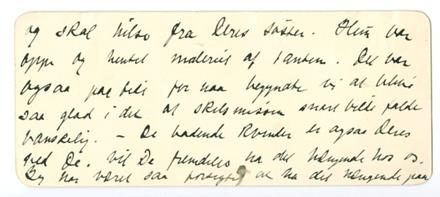 og skal hilse fra Deres søster. Hun var
oppe og hentet nederst af tanten. Det var
ogsaa paa tide for naa begyndte vi at blive
saa glad i det at skilsmissen snart vilde falde
vanskelig. – De badende Kvinder er ogsaa Deres
ved De. Vil De fremdeles ha det hængende hos os.
Jeg har været saa forsigtig at ha det hængende paa